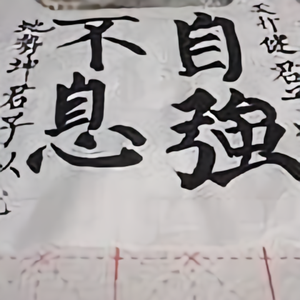 天行健君子
自強
不息
地勢坤君子以